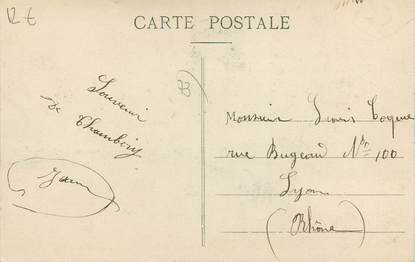 12 €
CARTE POSTALE
73
Souvenir
de
Chambéry
Monsieur Louis Coque
rue Bugeaud No 100
Lyon
(Rhône)